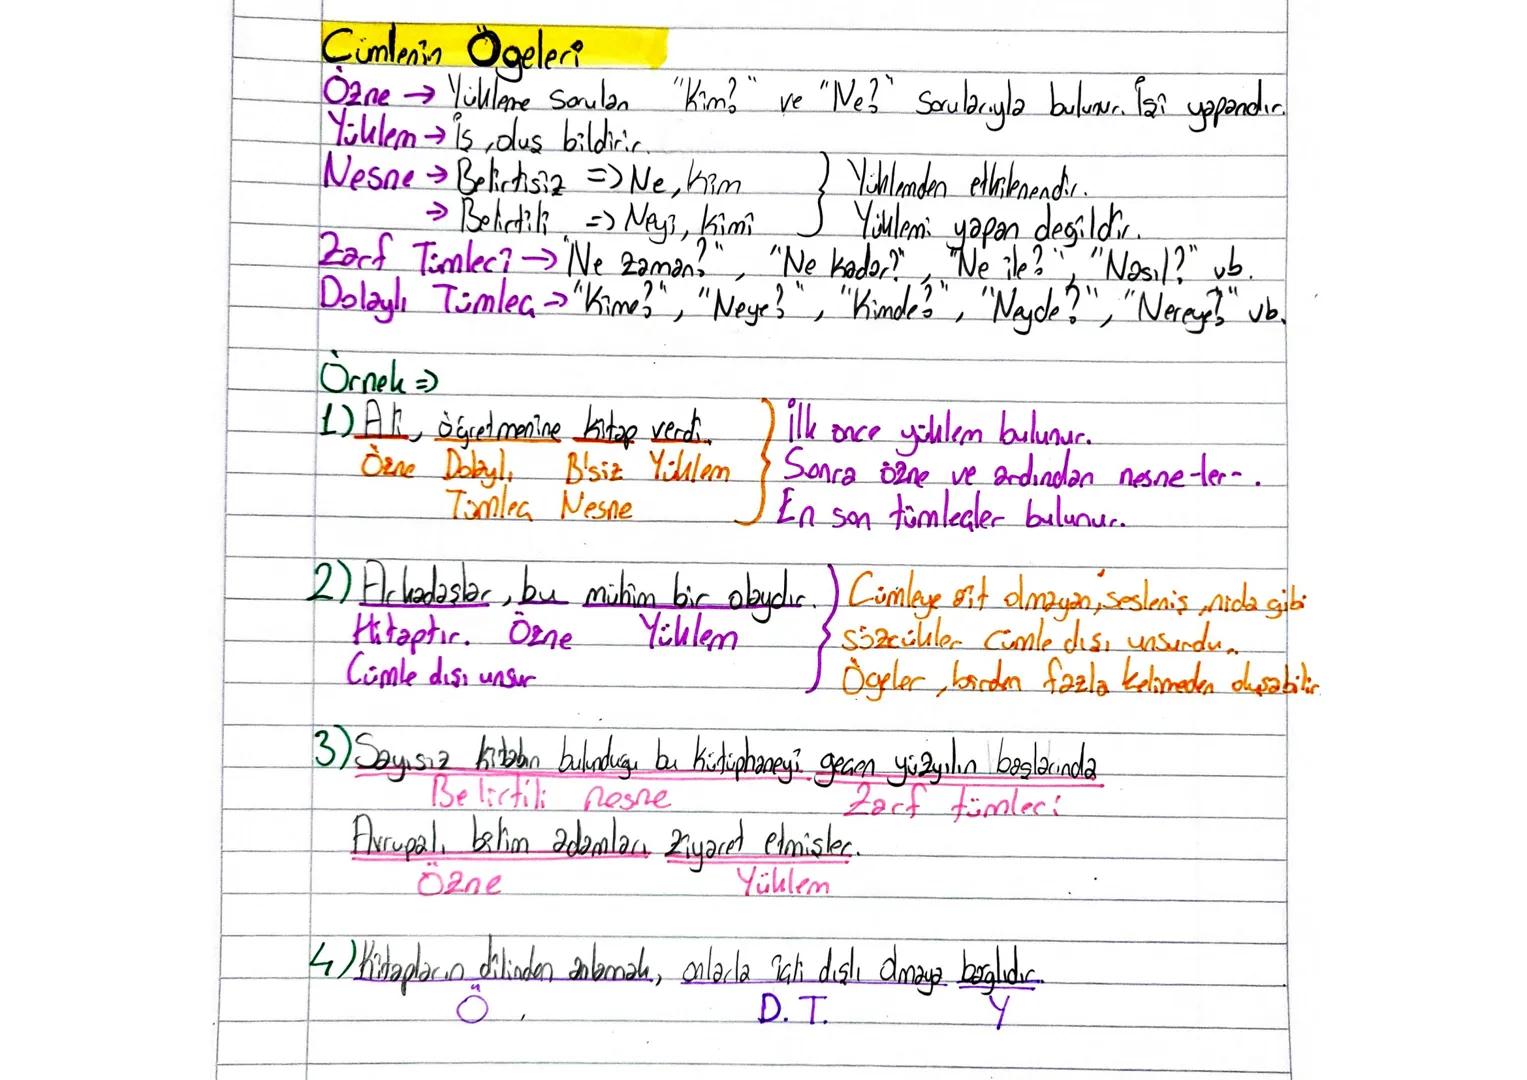 Cümlenin Ögeleri
Özne → Yükleme sorulan "Kim?" ve "Ne?" sorularıyla bulunur. İşi yapandır.
Yüklem → İş, oluş bildirir.
Nesne → Belirtisiz => Ne, kim } Yüklemden etkilenendir.
→ Belirtili => Neyi, kimi } Yüklemi yapan değildir.
Zarf Tümleci → "Ne zaman?", "Ne kadar?", "Ne ile?", "Nasıl?" vb.
Dolaylı Tümleç → "Kime?", "Neye?", "Kimde?", "Neyde?", "Nereye?" vb.
Örnek =>
1) Ali, öğretmenine kitap verdi. } İlk önce yüklem bulunur.
Özne Dolaylı B'siz Yüklem } Sonra özne ve ardından nesne-ler-.
Tümleç Nesne } En son tümleçler bulunur.
2) Arkadaşlar, bu mühim bir olaydır. } Cümleye ait olmayan, sesleniş, nida gibi
Hitaptır. Özne Yüklem } sözcükler cümle dışı unsurdu.
Cümle dışı unsur } Ögeler, birden fazla kelimeden oluşabilir.
3) Sayısız kitabın bulunduğu bu kütüphaneyi geçen yüzyılın başlarında
Belirtili nesne Zarf tümleci
Avrupalı bilim adamları ziyaret etmişler.
Özne Yüklem
4) Kitapların dilinden anlamak, onlarla içli dışlı olmaya bağlıdır.
Ö D. T. Y